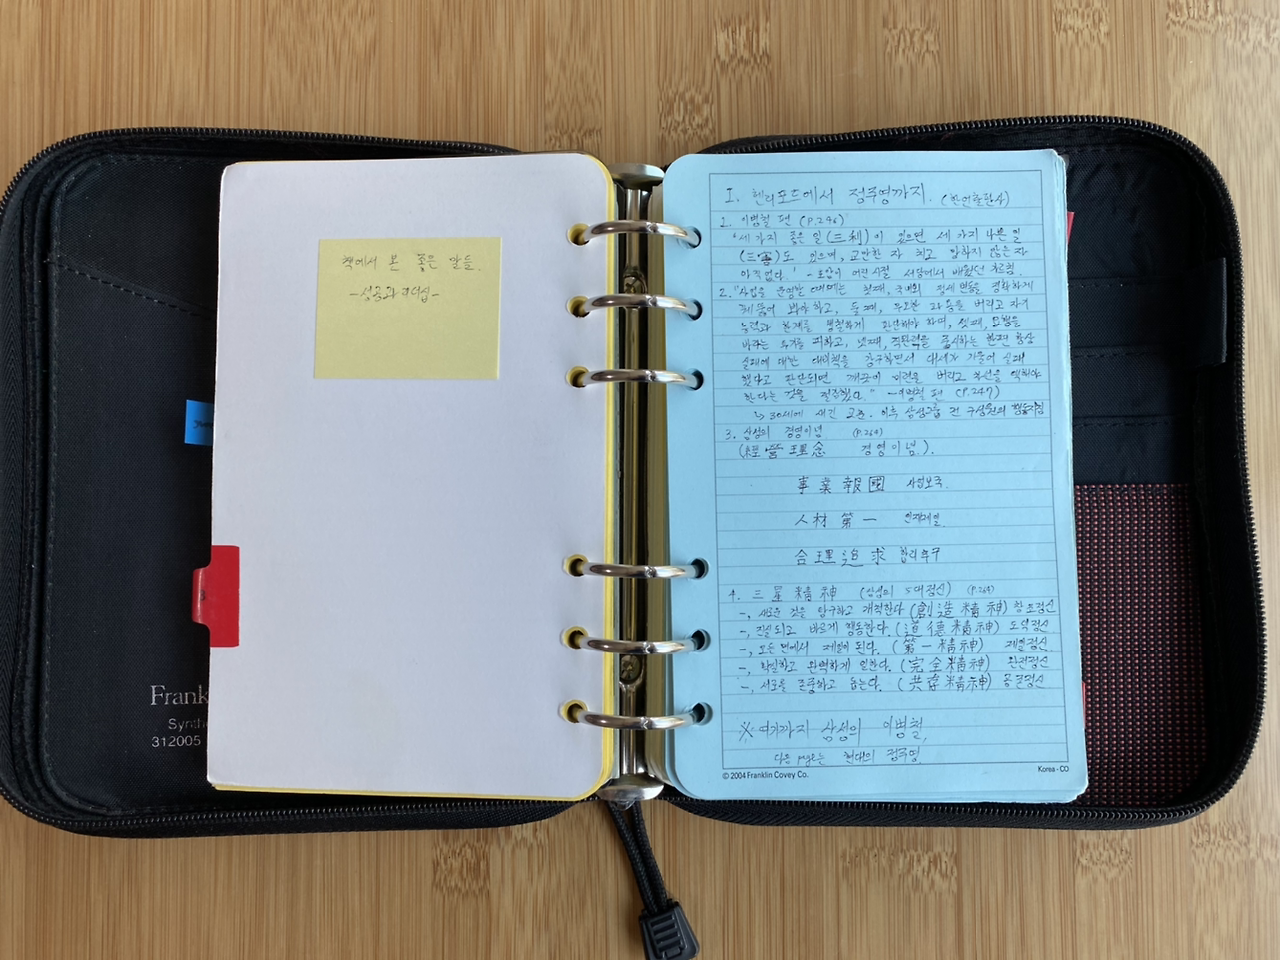 책에서 본 좋은 말들.
-성공과 리더십-
3
Frank
Synth
312005
I. 헨리포드에서 정주영까지. (한언출판사)
1. 이병철 편 (P.246)
'세가지 좋은 일(三利)이 있으면 세가지 나쁜 일
(三害)도 있으며, 교만한 자 치고 망하지 않은 자
아직 없다.' - 호암이 어린시절 서당에서 배웠던 구절.
2. "사업을 운영할 때에는 첫째, 국내외 정세 변동을 정확하게
꿰뚫어 봐야 하고, 둘째, 무모한 과욕을 버리고 자기
능력과 한계를 냉철하게 판단해야 하며, 셋째, 요행을
바라는 투기를 피하고, 넷째, 직관력을 중시하는 한편 항상
실패에 대한 대비책을 강구하면서 대세가 기울어 실패
했다고 판단되면 깨끗이 미련을 버리고 차선을 택해야
한다는 것을 절감했다." -이병철 편 (P.247)
↳ 30세에 새긴 교훈. 이후 삼성그룹 전 구성원의 행동지침
3. 삼성의 경영이념 (P.264)
(經營理念 경영이념.).
事業報國 사업보국.
人材第一 인재제일.
合理追求 합리추구
4. 三星精神 (삼성의 5대정신) (P.264)
-, 새로운 것을 탐구하고 개척한다 (創造精神) 창조정신
-, 진실되고 바르게 행동한다. (道德精神) 도덕정신
-, 모든 면에서 제일이 된다. (第一精神) 제일정신.
-, 확인하고 완벽하게 일한다. (完全精神) 완전정신
-, 서로를 존중하고 돕는다. (共存精神) 공존정신
※ 여기까지 삼성의 이병철,
다음 page는 현대의 정주영
© 2004 Franklin Covey Co. Korea - CO